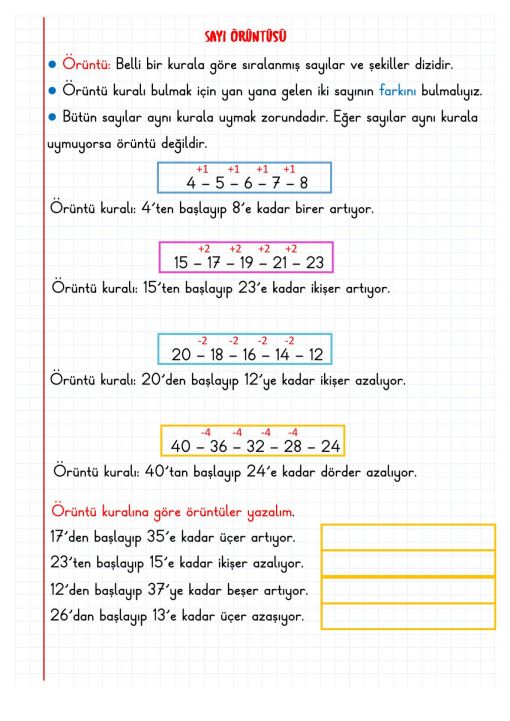 SAYI ÖRÜNTÜSÜ
● Örüntü: Belli bir kurala göre sıralanmış sayılar ve şekiller dizidir.
● Örüntü kuralı bulmak için yan yana gelen iki sayının farkını bulmalıyız.
● Bütün sayılar aynı kurala uymak zorundadır. Eğer sayılar aynı kurala
uymuyorsa örüntü değildir.
+1 +1 +1 +1
4 – 5 – 6 – 7 – 8
Örüntü kuralı: 4'ten başlayıp 8'e kadar birer artıyor.
+2 +2 +2 +2
15 – 17 – 19 – 21 – 23
Örüntü kuralı: 15'ten başlayıp 23'e kadar ikişer artıyor.
-2 -2 -2 -2
20 – 18 – 16 – 14 – 12
Örüntü kuralı: 20'den başlayıp 12'ye kadar ikişer azalıyor.
-4 -4 -4 -4
40 – 36 – 32 – 28 – 24
Örüntü kuralı: 40'tan başlayıp 24'e kadar dörder azalıyor.
Örüntü kuralına göre örüntüler yazalım.
17'den başlayıp 35'e kadar üçer artıyor.
23'ten başlayıp 15'e kadar ikişer azalıyor.
12'den başlayıp 37'ye kadar beşer artıyor.
26'dan başlayıp 13'e kadar üçer azaşıyor.